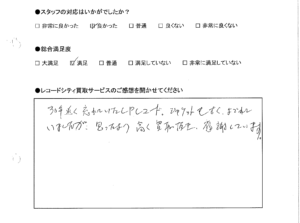 ●スタッフの対応はいかがでしたか?
□ 非常に良かった ☑ 良かった □ 普通 □ 良くない □ 非常に良くない
●総合満足度
□ 大満足 ☑ 満足 □ 普通 □ 満足していない □ 非常に満足していない
●レコードシティ買取サービスのご感想を聞かせてください
30年近く レコード、ジャケットも
いましたが、思ったより高く 感謝しています